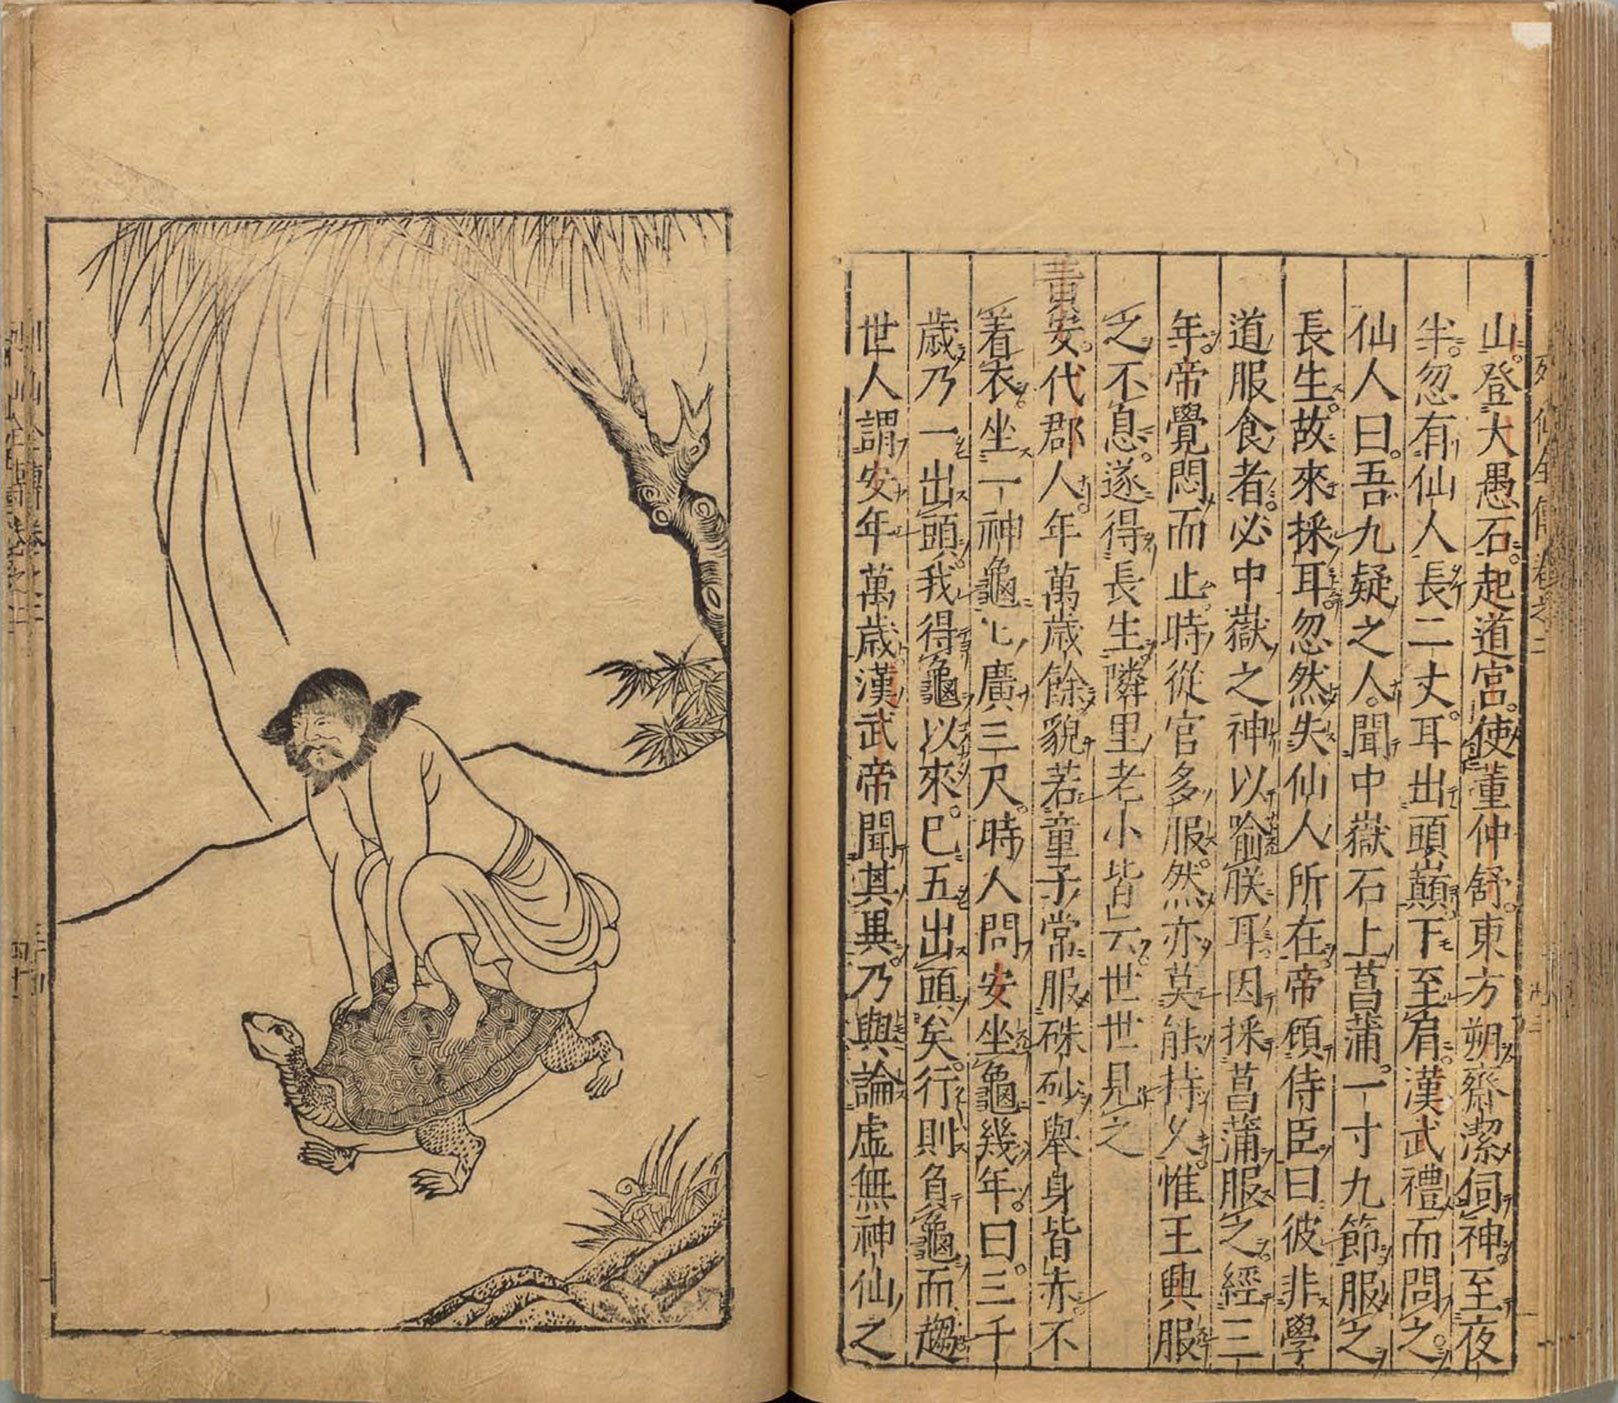 山登大愚石起道宮使董仲舒東方朔齋潔伺神至夜
半忽有仙人長二丈耳出頭巔下至肩漢武禮而問之
仙人曰吾九疑之人聞中嶽石上菖蒲一寸九節服之
長生故來採耳忽然失仙人所在帝顧侍臣曰彼非學
道服食者必中嶽之神以喻朕耳因採菖蒲服之經三
年帝覺悶而止時從官多服然亦莫能持久惟王興服
之不息遂得長生隣里老小皆云世世見之
黃安代郡人年萬歲餘貌若童子常服硃砂舉身皆赤不
着衣坐一神龜龜廣三尺時人問安坐龜幾年曰三千
歲乃一出頭我得龜以來已五出頭矣行則負龜而趨
世人謂安年萬歲漢武帝聞其異乃與論虛無神仙之